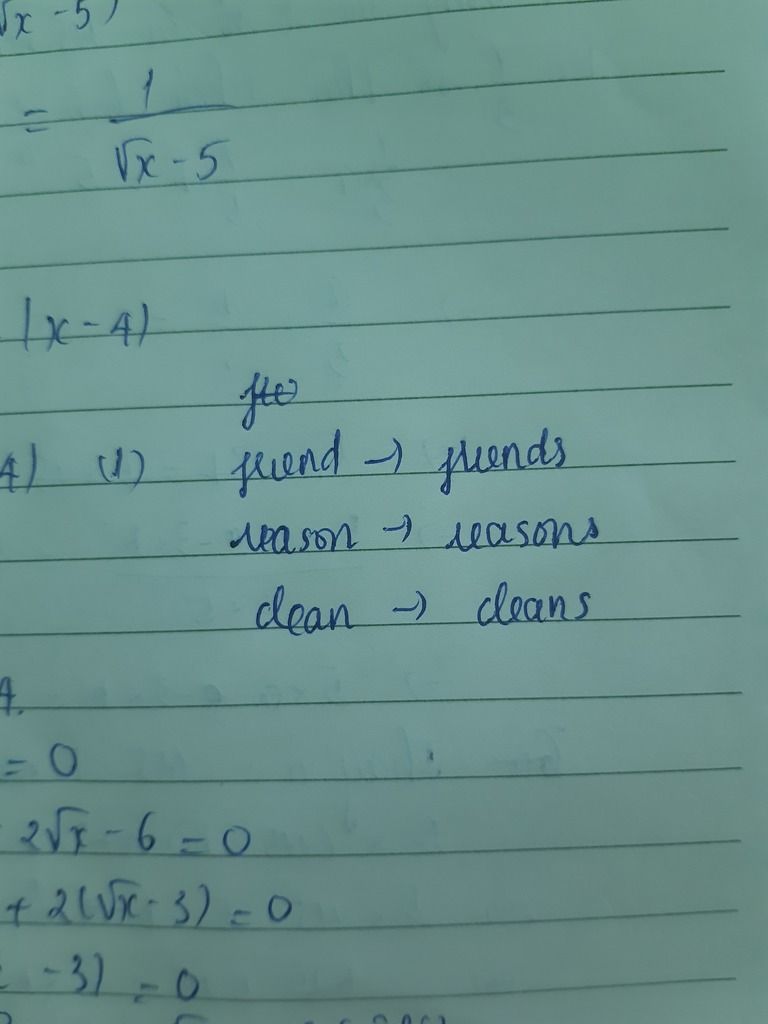 √x - 5)
= 1 / √x - 5
|x - 4)
friend → friends
4) (1)
reason → reasons
clean → cleans
4.
= 0
2√x - 6 = 0
+ 2(√x - 3) = 0
- 3) = 0